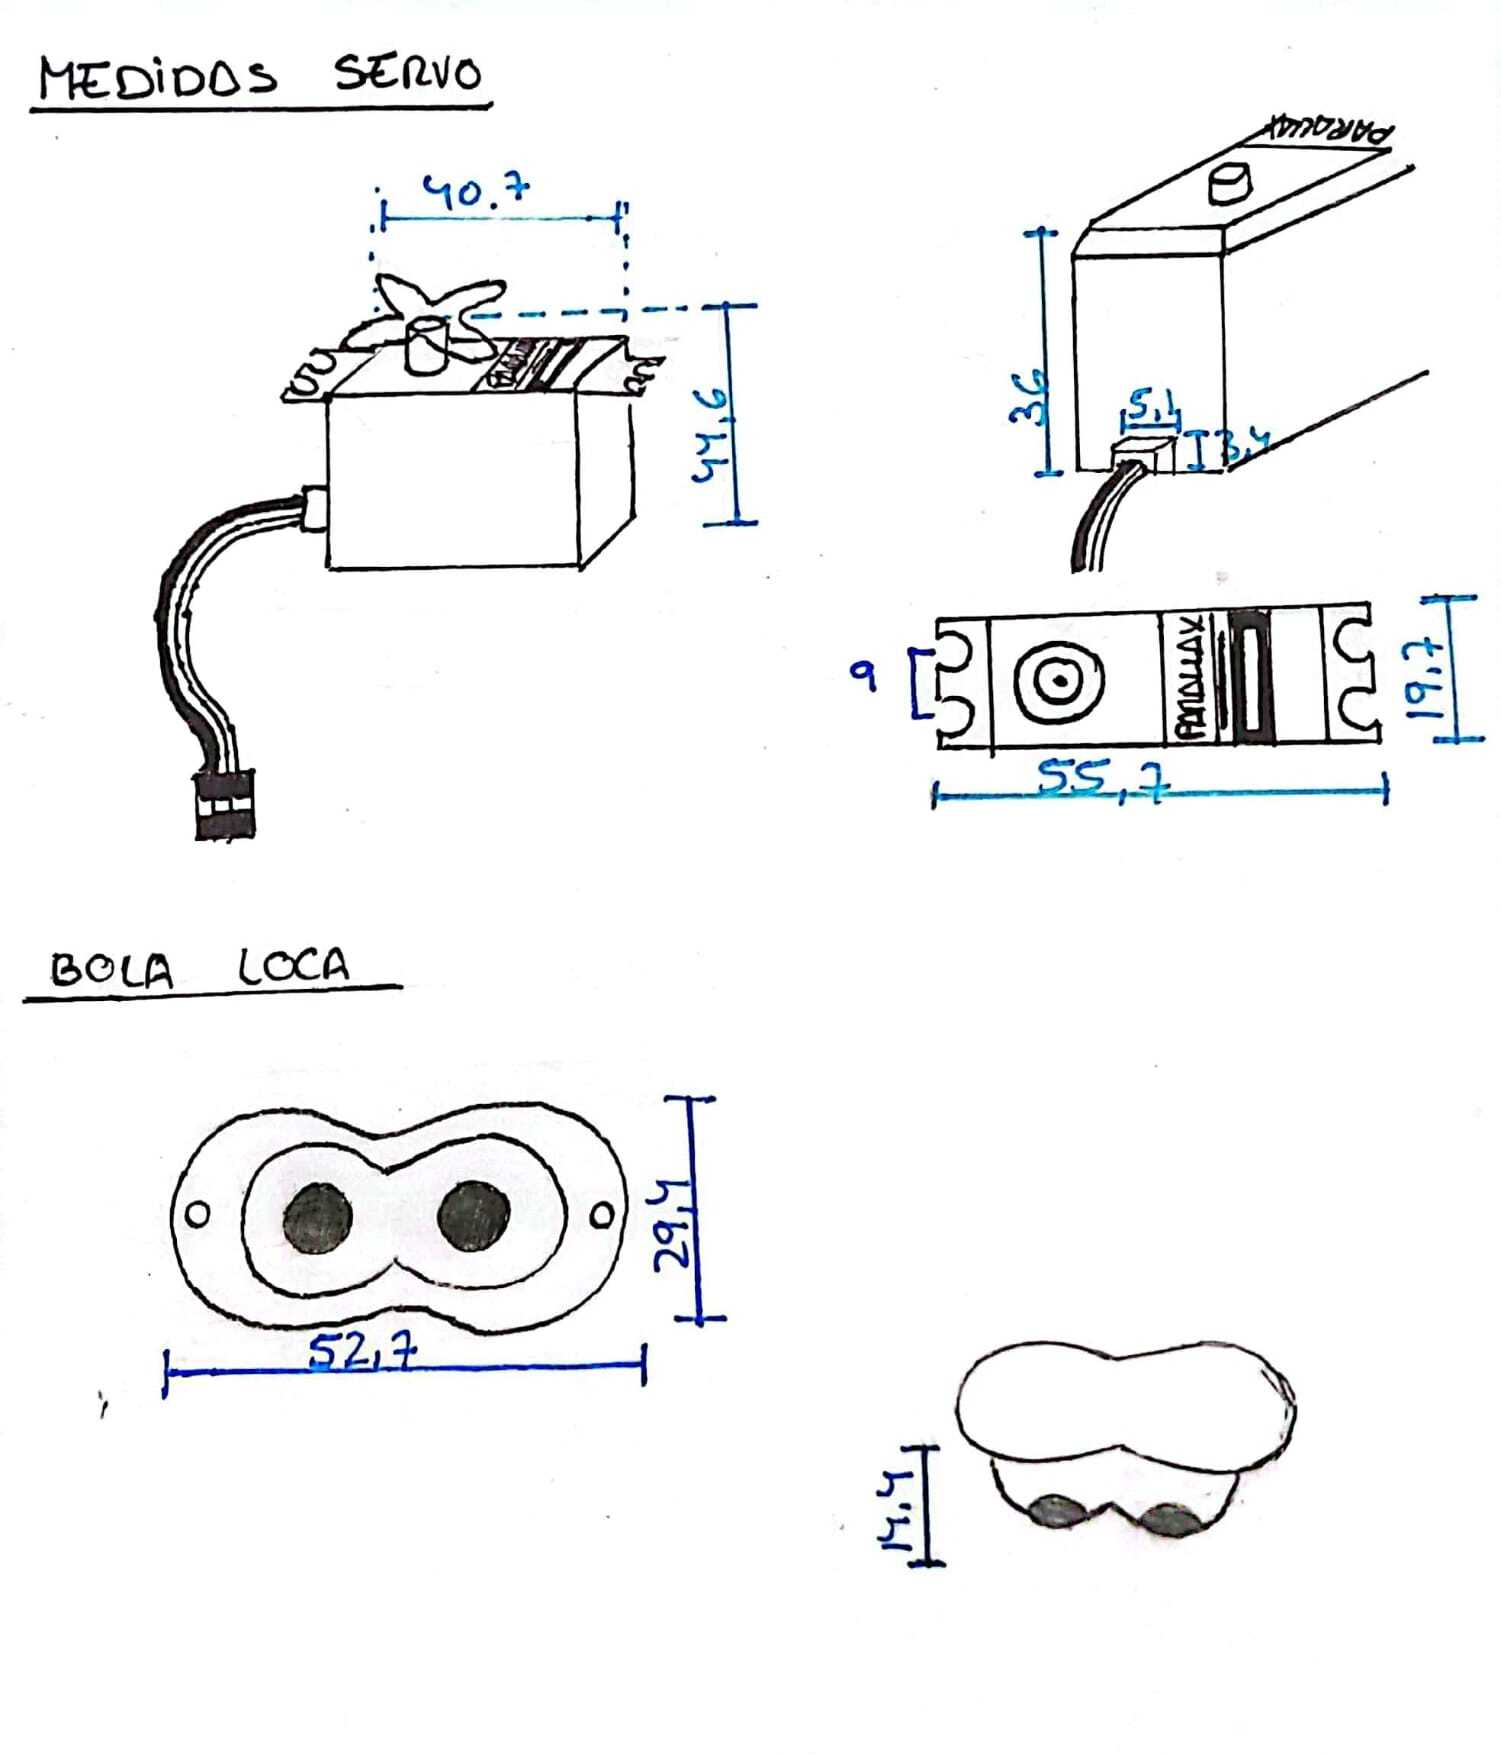 MEDiDAS SERVO
PARALLAX
40.7
44,6
36
5,1
3,4
9
PARALLAX
19,7
55,7
BOLA LOCA
29,4
52,7
14,4